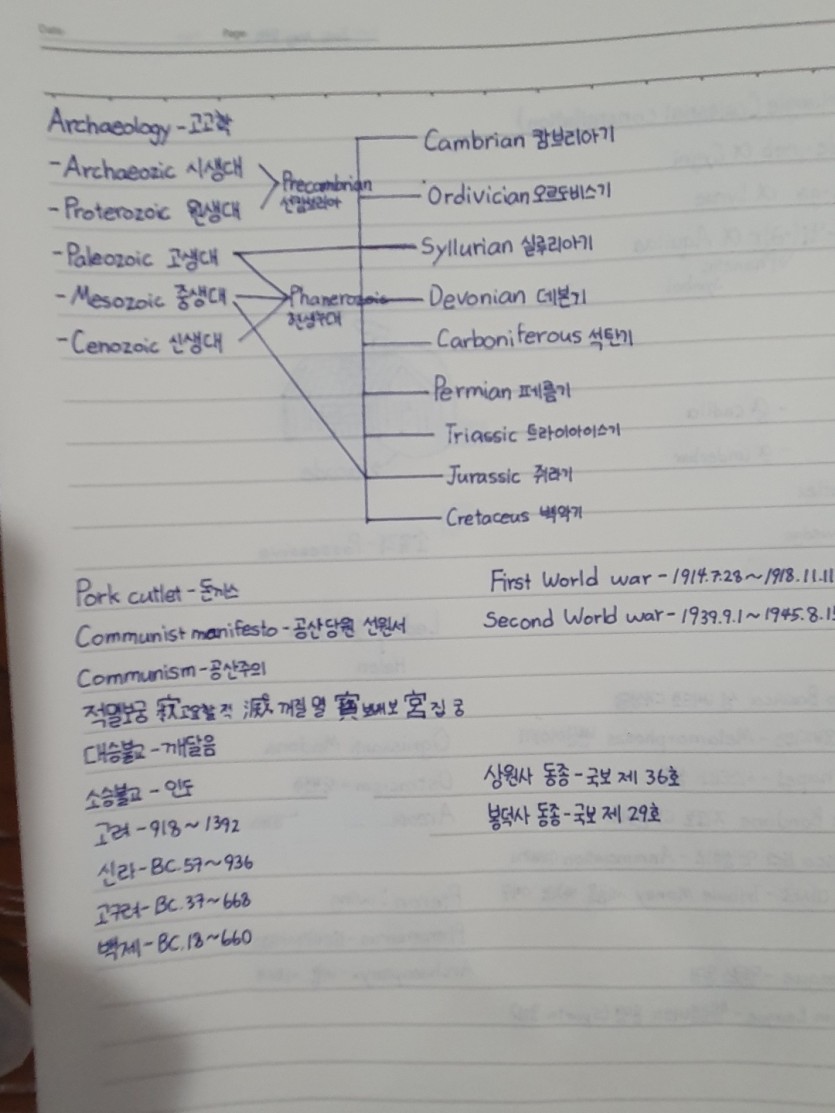 Date. Page.
Archaeology - 고고학
- Archaeozic 시생대
- Proterozoic 원생대
- Paleozoic 고생대
- Mesozoic 중생대
- Cenozoic 신생대
Precambrian
선캄브리아
Phanerozoic
현생누대
Cambrian 캄브리아기
Ordivician 오르도비스기
Syllurian 실루리아기
Devonian 데본기
Carboniferous 석탄기
Permian 페름기
Triassic 트라이아이스기
Jurassic 쥐라기
Cretaceus 백악기
Pork cutlet - 돈까스
Communist manifesto - 공산당원 선원서
Communism - 공산주의
적멸보궁 고요할 적 꺼질 멸 寶 보배 보 宮 집 궁
대승불교 - 깨달음
소승불교 - 인도
고려 - 918 ~ 1392
신라 - BC.57 ~ 936
고구려 - BC.37 ~ 668
백제 - BC.18 ~ 660
First World war - 1914.7.28 ~ 1918.11.11
Second World war - 1939.9.1 ~ 1945.8.15
상원사 동종 - 국보 제 36호
봉덕사 동종 - 국보 제 29호